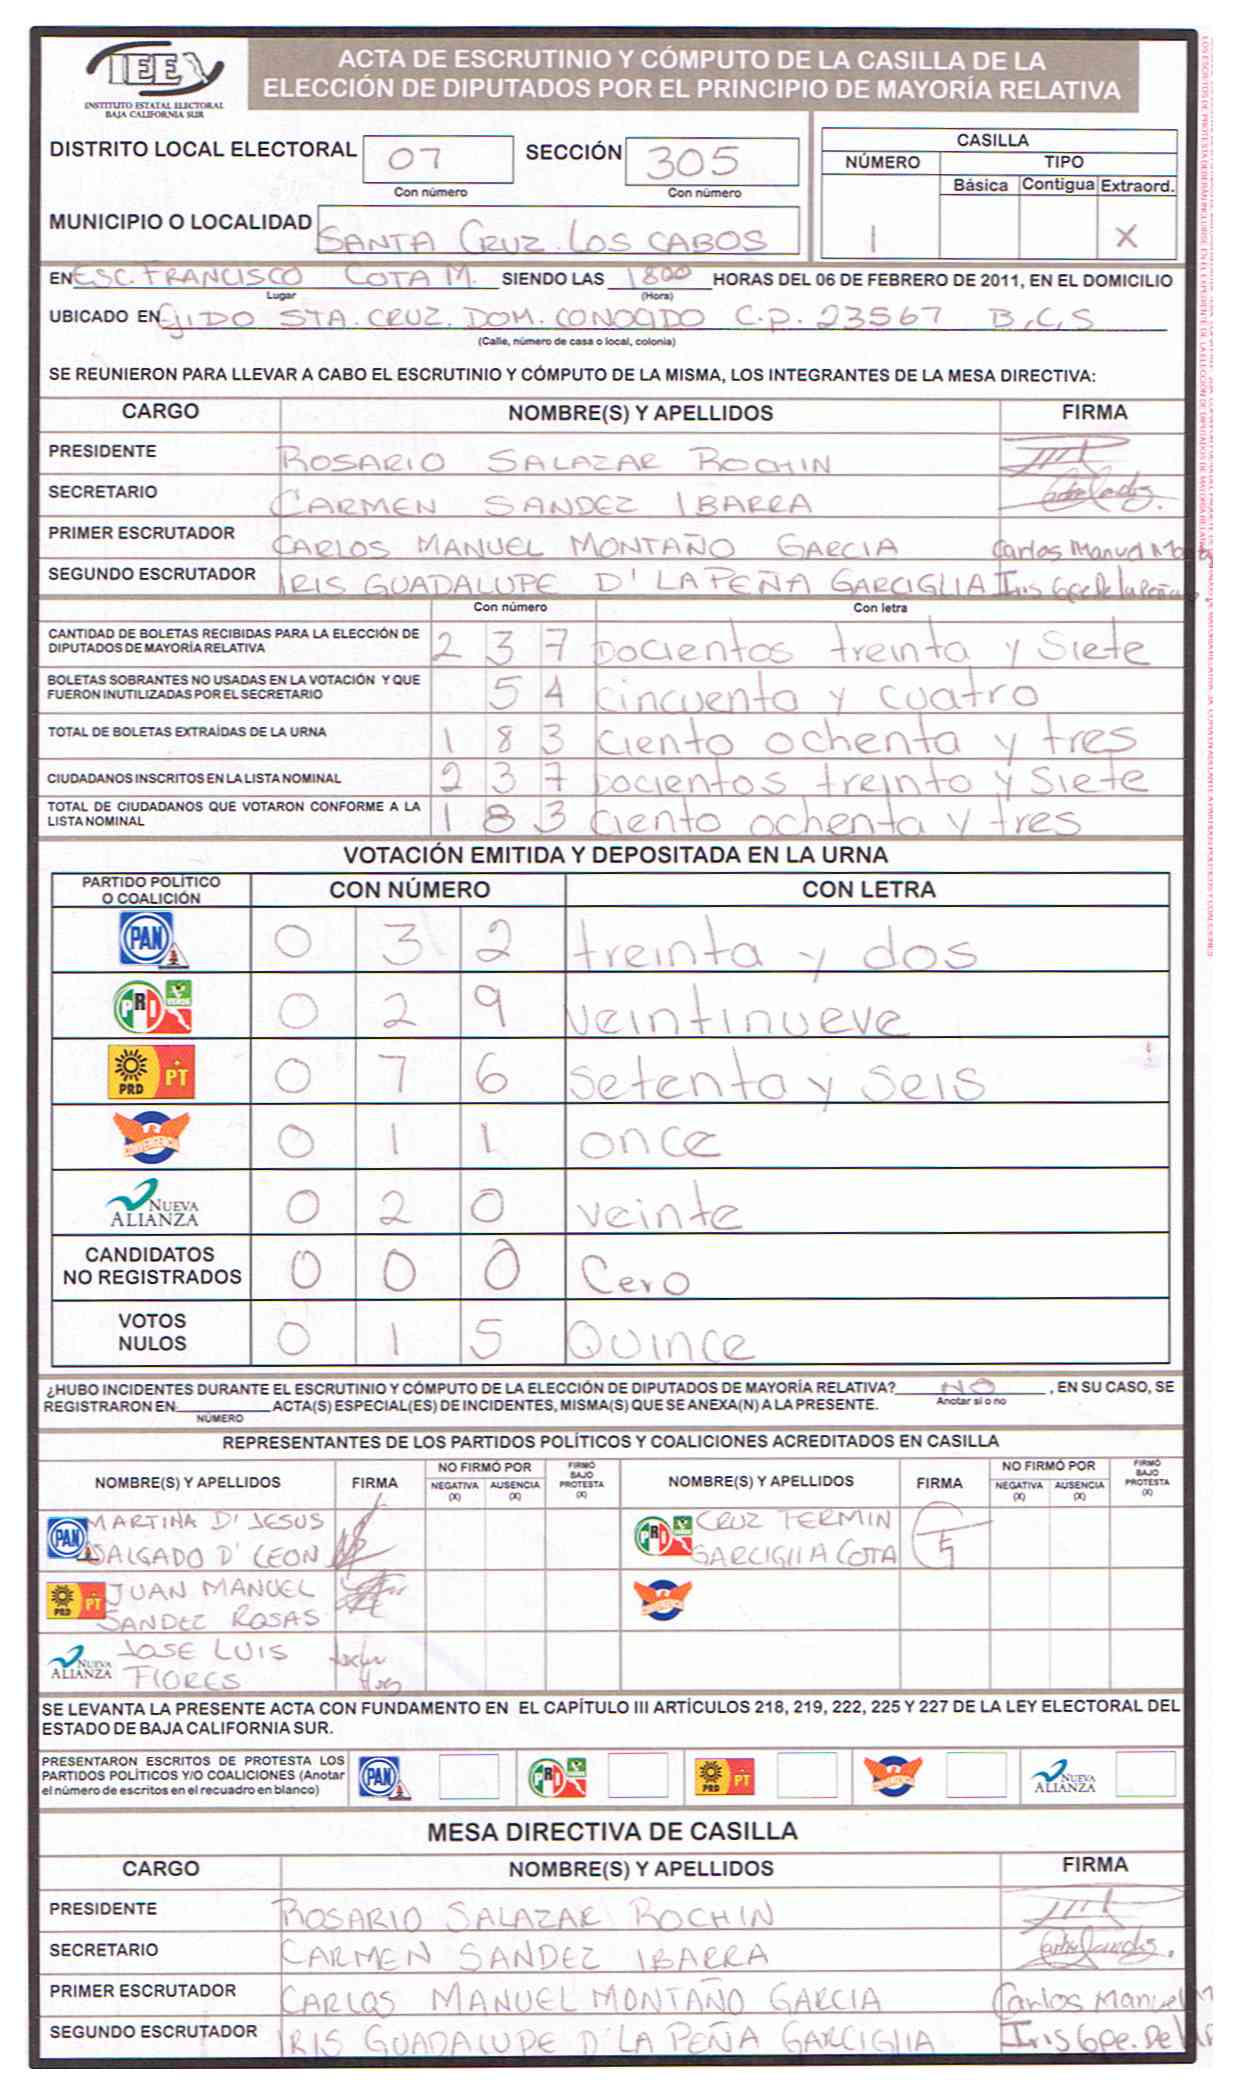 IEE
INSTITUTO ESTATAL ELECTORAL
BAJA CALIFORNIA SUR
ACTA DE ESCRUTINIO Y CÓMPUTO DE LA CASILLA DE LA
ELECCIÓN DE DIPUTADOS POR EL PRINCIPIO DE MAYORÍA RELATIVA
DISTRITO LOCAL ELECTORAL 07 SECCIÓN 305
Con número Con número
MUNICIPIO O LOCALIDAD SANTA CRUZ. LOS CABOS
CASILLA
NÚMERO TIPO
Básica Contigua Extraord.
1 X
EN ESC. FRANCISCO COTA M. SIENDO LAS 1800 HORAS DEL 06 DE FEBRERO DE 2011, EN EL DOMICILIO
Lugar (Hora)
UBICADO EN EJIDO STA. CRUZ. DOM. CONOCIDO C.P. 23567 B,C,S
(Calle, número de casa o local, colonia)
SE REUNIERON PARA LLEVAR A CABO EL ESCRUTINIO Y CÓMPUTO DE LA MISMA, LOS INTEGRANTES DE LA MESA DIRECTIVA:
CARGO NOMBRE(S) Y APELLIDOS FIRMA
PRESIDENTE ROSARIO SALAZAR ROCHIN
SECRETARIO CARMEN SANDEZ IBARRA
PRIMER ESCRUTADOR CARLOS MANUEL MONTAÑO GARCIA Carlos Manuel
SEGUNDO ESCRUTADOR IRIS GUADALUPE D' LA PEÑA GARCIGLIA Iris Gpe De la Peña
Con número Con letra
CANTIDAD DE BOLETAS RECIBIDAS PARA LA ELECCIÓN DE
DIPUTADOS DE MAYORÍA RELATIVA 2 3 7 Docientos treinta y Siete
BOLETAS SOBRANTES NO USADAS EN LA VOTACIÓN Y QUE
FUERON INUTILIZADAS POR EL SECRETARIO 5 4 cincuenta y cuatro
TOTAL DE BOLETAS EXTRAÍDAS DE LA URNA 1 8 3 ciento ochenta y tres
CIUDADANOS INSCRITOS EN LA LISTA NOMINAL 2 3 7 Docientos treinto y Siete
TOTAL DE CIUDADANOS QUE VOTARON CONFORME A LA
LISTA NOMINAL 1 8 3 ciento ochenta y tres
VOTACIÓN EMITIDA Y DEPOSITADA EN LA URNA
PARTIDO POLÍTICO
O COALICIÓN CON NÚMERO CON LETRA
PAN 0 3 2 treinta y dos
PRI VERDE 0 2 9 veintinueve
PRD PT 0 7 6 setenta y seis
CONVERGENCIA 0 1 1 once
NUEVA ALIANZA 0 2 0 veinte
CANDIDATOS
NO REGISTRADOS 0 0 0 Cero
VOTOS
NULOS 0 1 5 Quince
¿HUBO INCIDENTES DURANTE EL ESCRUTINIO Y CÓMPUTO DE LA ELECCIÓN DE DIPUTADOS DE MAYORÍA RELATIVA? NO , EN SU CASO, SE
Anotar sí o no
REGISTRARON EN ACTA(S) ESPECIAL(ES) DE INCIDENTES, MISMA(S) QUE SE ANEXA(N) A LA PRESENTE.
NÚMERO
REPRESENTANTES DE LOS PARTIDOS POLÍTICOS Y COALICIONES ACREDITADOS EN CASILLA
NOMBRE(S) Y APELLIDOS FIRMA NO FIRMÓ POR NEGATIVA (X) AUSENCIA (X) FIRMÓ BAJO PROTESTA (X) NOMBRE(S) Y APELLIDOS FIRMA NO FIRMÓ POR NEGATIVA (X) AUSENCIA (X) FIRMÓ BAJO PROTESTA (X)
PAN MARTINA D' JESUS
SALGADO D' LEON
PRI VERDE CRUZ FERMIN
GARCIGLIA COTA
PRD PT JUAN MANUEL
SANDEZ ROSAS
CONVERGENCIA
NUEVA ALIANZA JOSE LUIS
FLORES
SE LEVANTA LA PRESENTE ACTA CON FUNDAMENTO EN EL CAPÍTULO III ARTÍCULOS 218, 219, 222, 225 Y 227 DE LA LEY ELECTORAL DEL
ESTADO DE BAJA CALIFORNIA SUR.
PRESENTARON ESCRITOS DE PROTESTA LOS
PARTIDOS POLÍTICOS Y/O COALICIONES (Anotar
el número de escritos en el recuadro en blanco)
PAN PRI VERDE PRD PT CONVERGENCIA NUEVA ALIANZA
MESA DIRECTIVA DE CASILLA
CARGO NOMBRE(S) Y APELLIDOS FIRMA
PRESIDENTE ROSARIO SALAZAR ROCHIN
SECRETARIO CARMEN SANDEZ IBARRA
PRIMER ESCRUTADOR CARLOS MANUEL MONTAÑO GARCIA Carlos Manuel
SEGUNDO ESCRUTADOR IRIS GUADALUPE D' LA PEÑA GARCIGLIA Iris Gpe. De